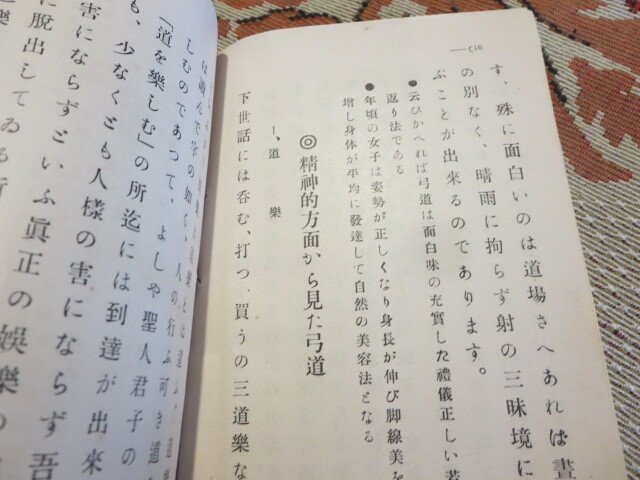 す、殊に面白いのは道場さへあれば晝
の別なく、晴雨に拘らず射の三昧境に
ぶことが出來るのであります。
●云ひかへれば弓道は面白味の充實した禮儀正しい若
返り法である
●年頃の女子は姿勢が正しくなり身長が伸び脚線美を
增し身体が平均に發達して自然の美容法となる
◎精神的方面から見た弓道
一、道樂
下世話には呑む、打つ、買うの三道樂な
しむのであつて、よしや聖人君子の
「道を樂しむ」の所迄には到達が出來
も、少なくとも人樣の害にならず吾
害にならずといふ眞正の娛樂の
に脫出してゐる